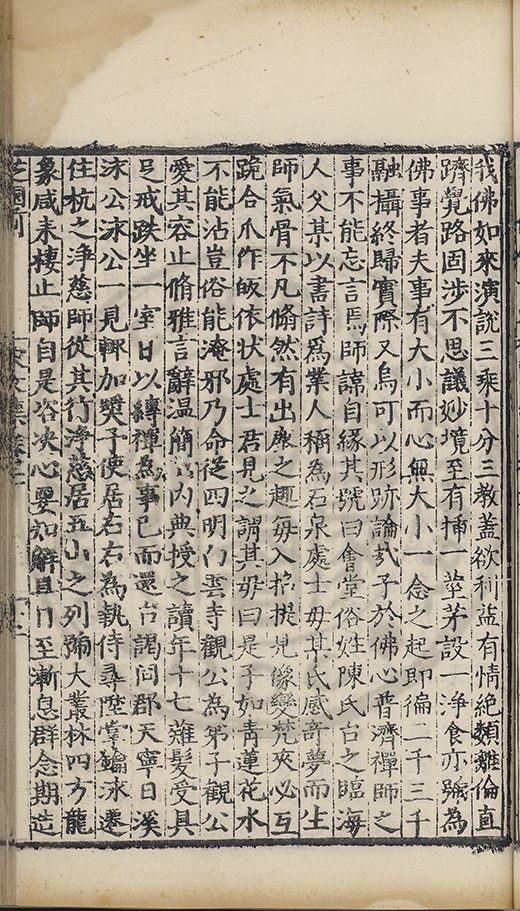 我佛如來演說三乘十分三教蓋欲利益有情絶類離倫直
躋覺路固涉不思議妙境至有揷一莖茅設一淨食亦號為
佛事者夫事有大小而心無大小一念之起即徧三千
融攝終歸實際又烏可以形跡論哉予於佛心普濟禪師之
事不能忘言焉師諱自緣其號曰會堂俗姓陳氏台之臨海
人父某以書詩爲業人稱為石泉處士母某氏感竒夢而生
師氣骨不凡翛然有出塵之趣每入招提見像變梵夾必互
跪合爪作皈依状處士君見之謂其母曰是子如青蓮花水
不能沾豈俗能淹邪乃命從四明白雲寺觀公為弟子觀公
愛其容止脩雅言辭温簡以内典授之讀年十七薙髮受具
足戒趺坐一室日以縛禪為事已而還台謁同郡天寧日溪
泳公泳公一見輙加奬予使居右右為執侍尋陞掌鑰泳遷
住杭之淨慈師從其行淨慈居五山之列號大叢林四方龍
象咸来棲止師自是咨决心要知解且日至漸息群念期造
芝園前